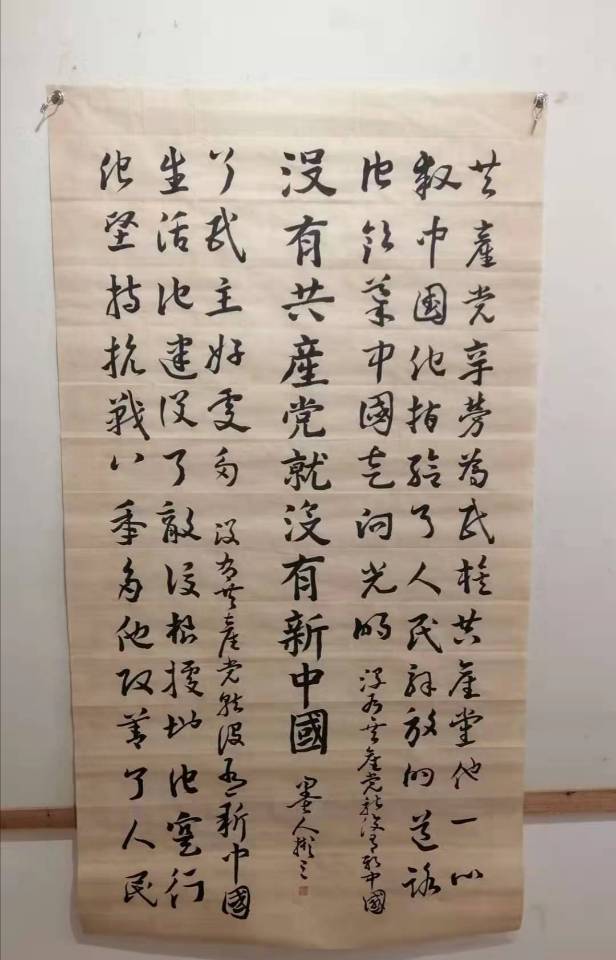 共產党辛劳為民族共產党他一心
救中国他指给了人民解放的道路
他领导中國走向光明 没有共產党就没有新中國
没有共産党就没有新中國
了民主好處多 没有共產党就没有新中國
生活他建设了敵後根據地他實行
他坚持抗戰八年多他改善了人民